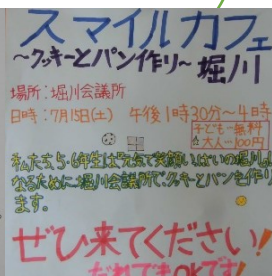 スマイルカフェ
~クッキーとパン作り~ 堀川
場所:堀川会議所
日時:7月15日(土) 午後1時30分~4時
子ども…無料
大人…100円
私たち5・6年生は元気で笑顔いっぱいの堀川に
なるために堀川会議所で、クッキーとパンを作り
ます。
ぜひ来てください!
だれでもOKです!